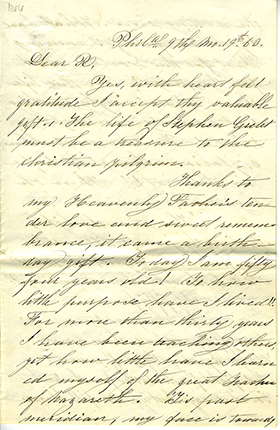 Philad. 9th Mo. 19th 60.
Dear R.
Yes, with heart felt
gratitude I accept thy valuable
gift. The life of Stephen Grellet
must be a treasure to the
christian pilgrim.
Thanks to
my Heavenly Father's ten-
der love and sweet remem-
brance, it came a birth-
day gift. To day I am fifty
four years old! To how
little purpose have I lived!!
For more than thirty years
I have been teaching others,
yet how little have I learn-
ed myself of the great Teacher
of Nazareth. 'Tis past
meridian, my face is toward